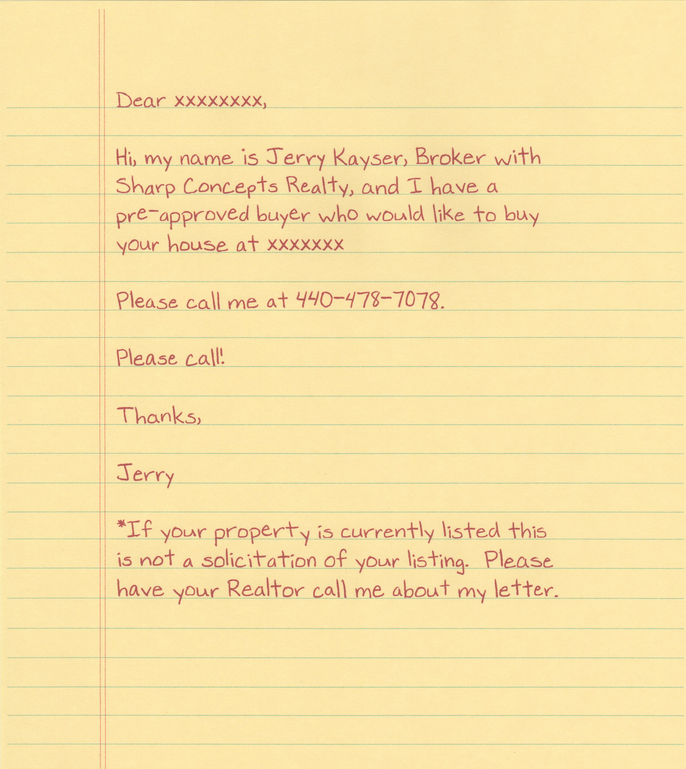 Dear xxxxxxxx,
Hi, my name is Jerry Kayser, Broker with
Sharp Concepts Realty, and I have a
pre-approved buyer who would like to buy
your house at xxxxxxx
Please call me at 440-478-7078.
Please call!
Thanks,
Jerry
*If your property is currently listed this
is not a solicitation of your listing. Please
have your Realtor call me about my letter.